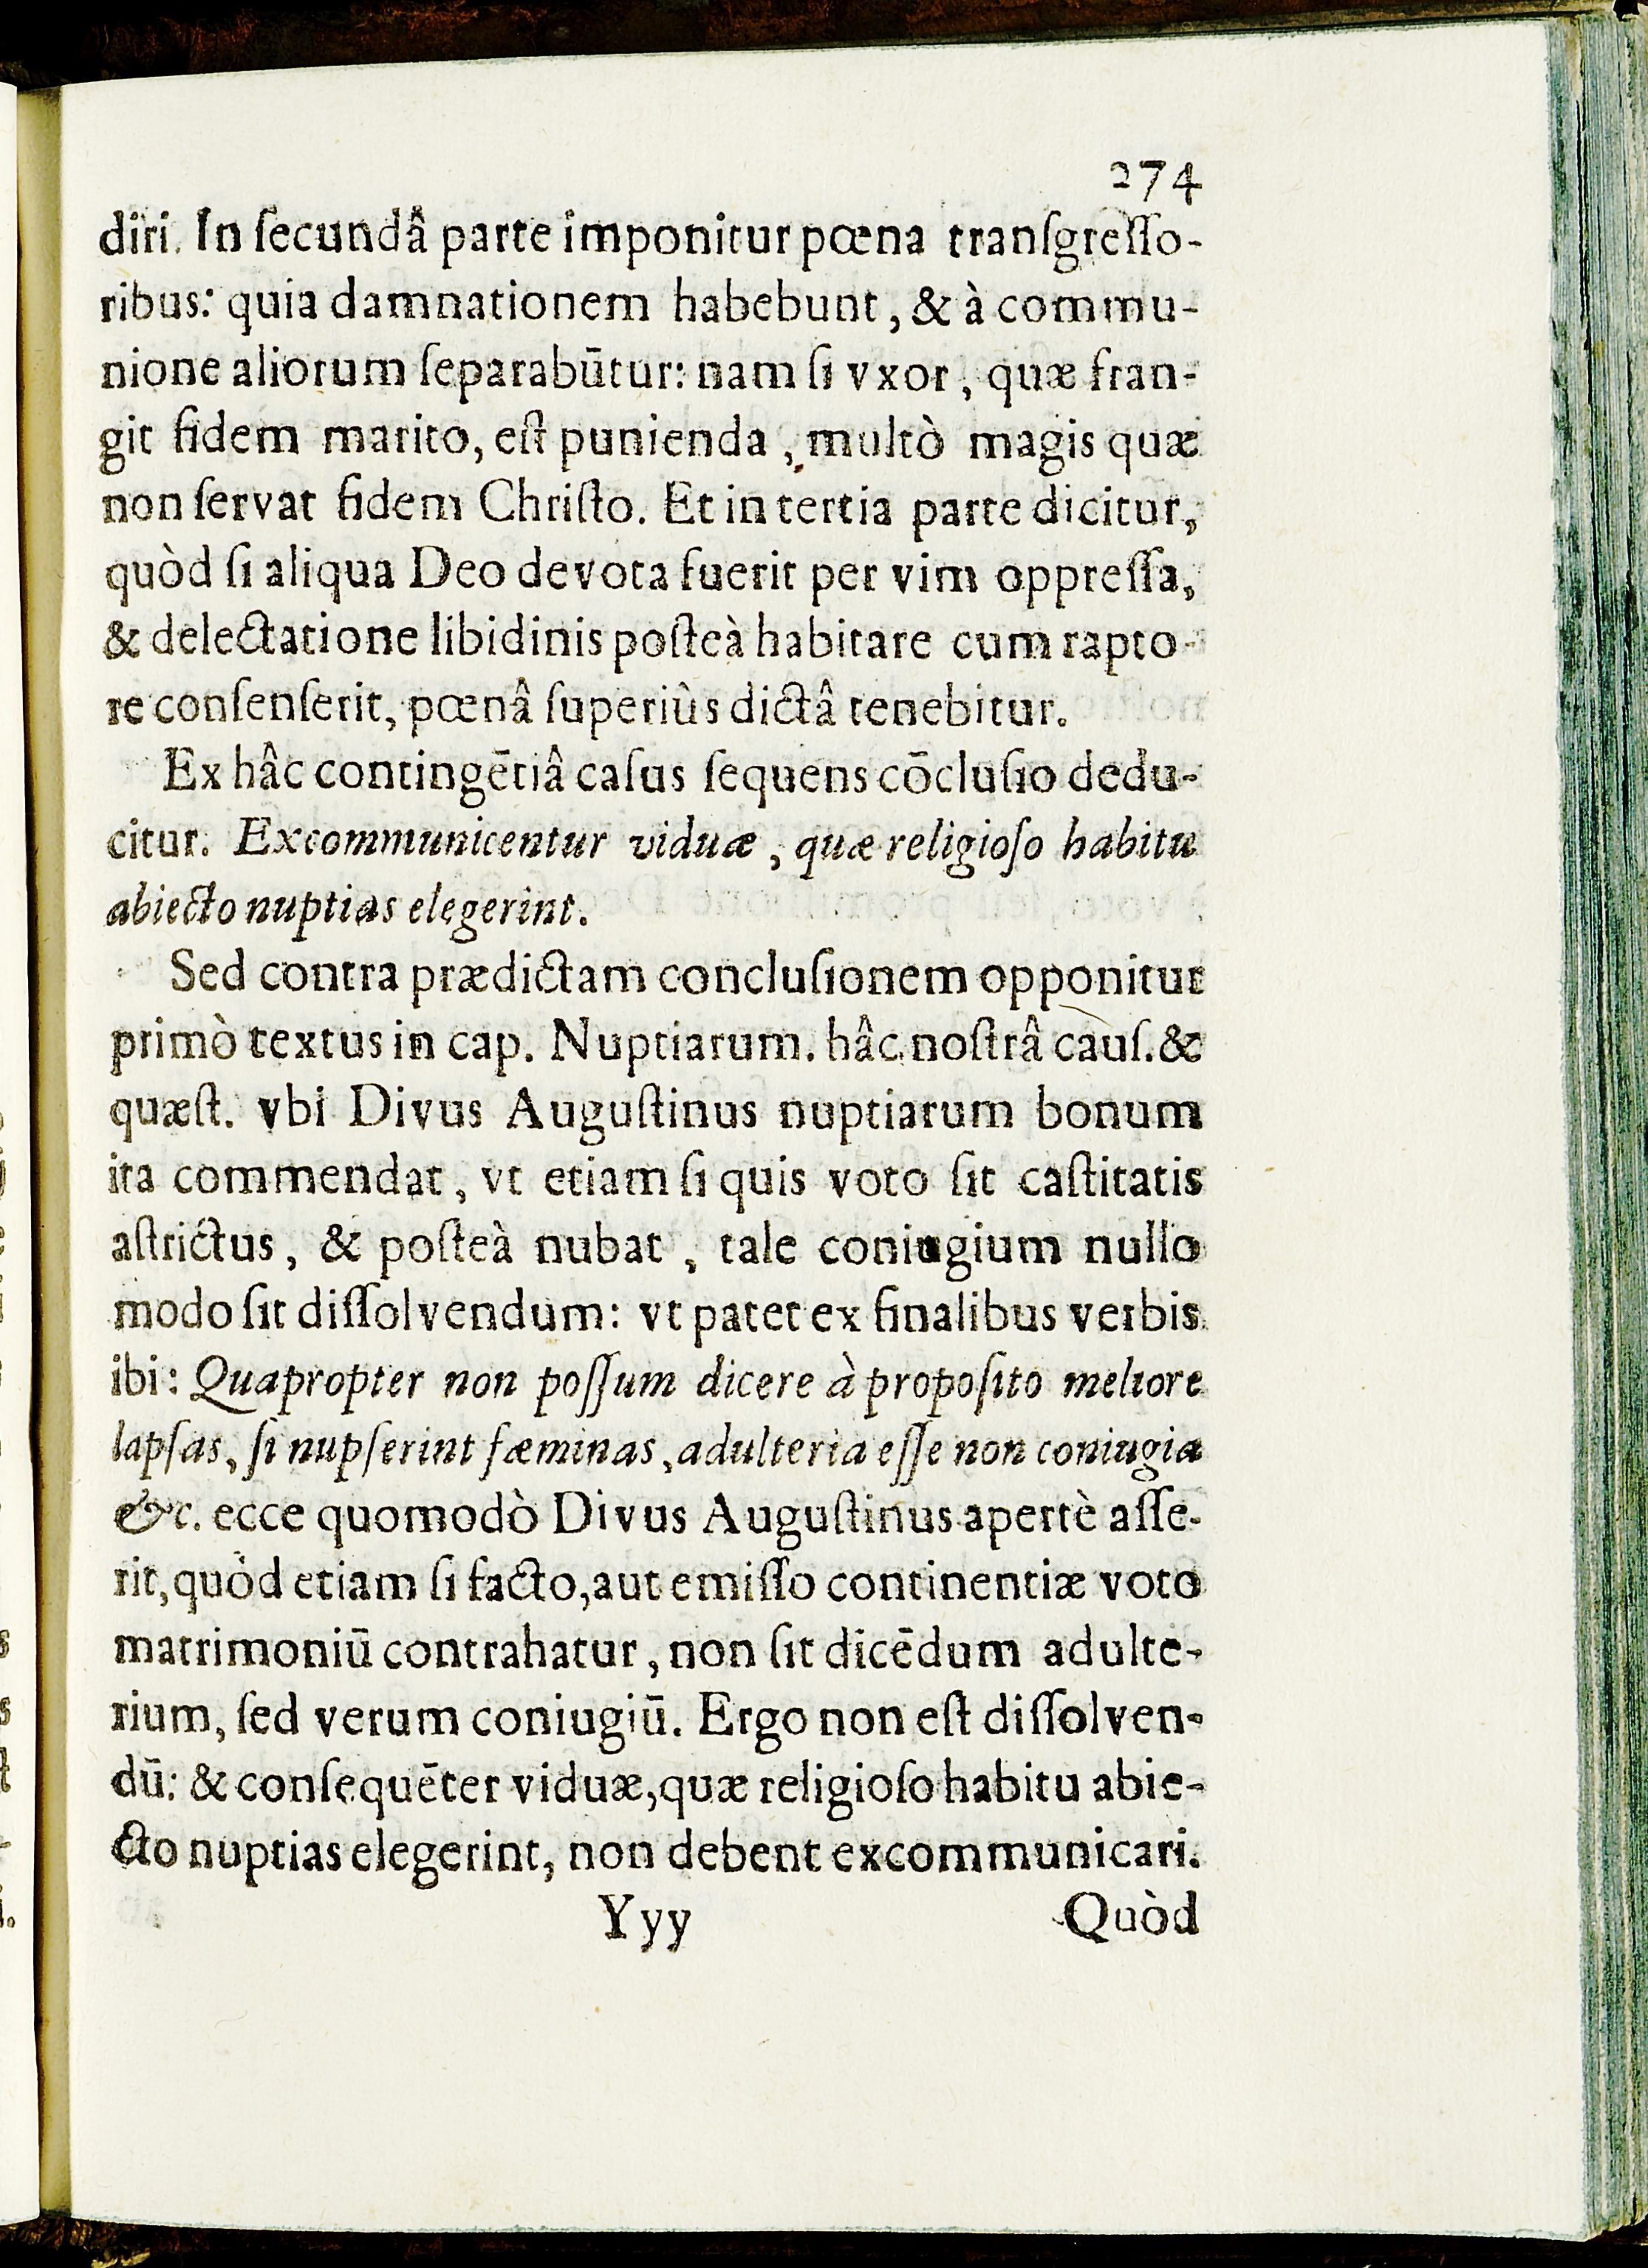 274
diri. In ſecundâ parte imponitur pœna tranſgreſſo-
ribus: quia damnationem habebunt, & à commu-
nione aliorum ſeparabūtur: nam ſi vxor, quæ fran-
git fidem marito, eſt punienda, multò magis quæ
non ſervat fidem Chriſto. Et in tertia parte dicitur,
quòd ſi aliqua Deo devota fuerit per vim oppreſſa,
& delectatione libidinis poſteà habitare cum rapto-
re conſenſerit, pœnâ ſuperiùs dictâ tenebitur.
Ex hâc contingētiâ caſus ſequens cōcluſio dedu-
citur. Excommunicentur viduæ, quæ religioſo habitu
abiecto nuptias elegerint.
Sed contra prædictam concluſionem opponitur
primò textus in cap. Nuptiarum. hâc noſtrâ cauſ. &
quæſt. vbi Divus Auguſtinus nuptiarum bonum
ita commendat, vt etiam ſi quis voto ſit caſtitatis
aſtrictus, & poſteà nubat, tale coniugium nullo
modo ſit diſſolvendum: vt patet ex finalibus verbis
ibi: Quapropter non poſſum dicere à propoſito meliore
lapſas, ſi nupſerint fæminas, adulteria eſſe non coniugia
&c. ecce quomodò Divus Auguſtinus apertè aſſe-
rit, quòd etiam ſi facto, aut emiſſo continentiæ voto
matrimoniū contrahatur, non ſit dicēdum adulte-
rium, ſed verum coniugiū. Ergo non eſt diſſolven-
dū: & conſequēter viduæ, quæ religioſo habitu abie-
cto nuptias elegerint, non debent excommunicari.
Yyy Quòd